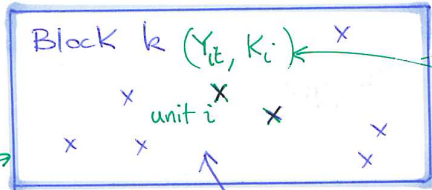 Block k (Y_it, K_i)
unit i